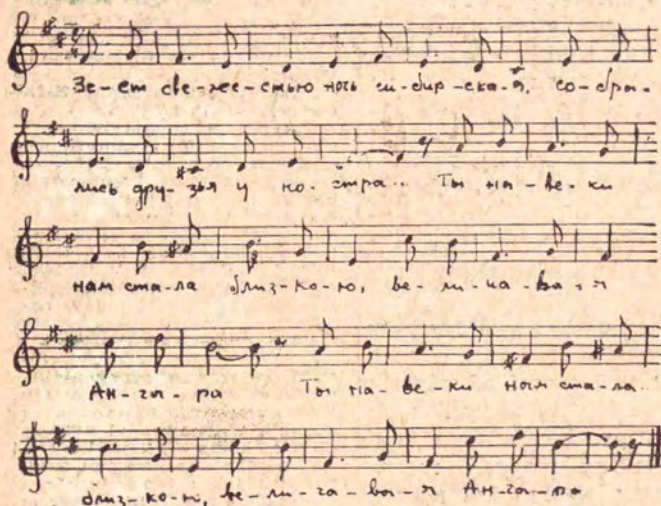 Ве-ет све-же-стью ночь си-бир-ска-я, со-бра-
лись дру-зья у ко-стра.. Ты на-ве-ки
нам ста-ла близ-ко-ю, ве-ли-ча-ва-я
Ан-га-ра Ты на-ве-ки нам ста-ла
близ-ко-ю, ве-ли-ча-ва-я Ан-га-ра